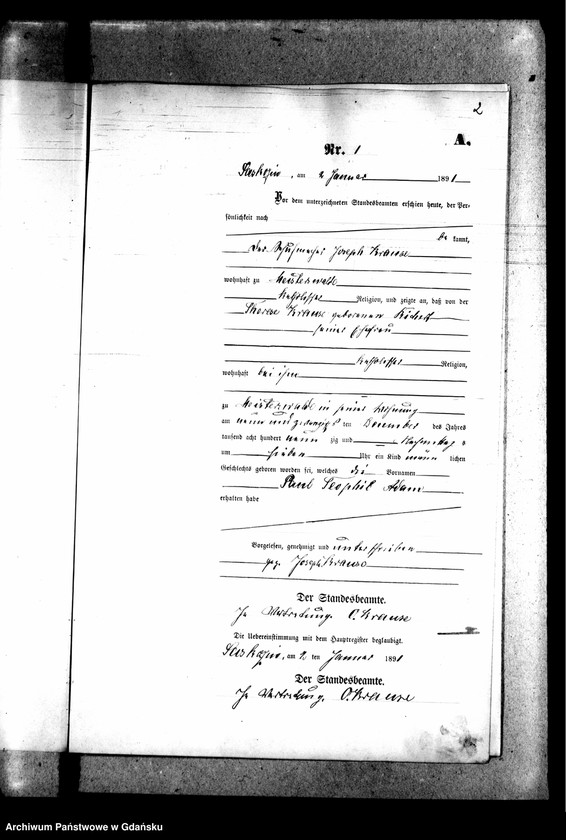 2
A.
Nr. 1
am 2 Januar 1891
Vor dem unterzeichneten Standesbeamten erschien heute, der Per-
sönlichkeit nach
be kannt,
der Schuhmacher Joseph Krause
wohnhaft zu Meisterswalde
katholischer Religion, und zeigte an, daß von der
Therese Krause geborenen
seiner Ehefrau
katholischer Religion,
wohnhaft bei ihm
zu Meisterswalde in seiner Wohnung
am neun und zwanzigs ten Dezember des Jahres
tausend acht hundert neun zig und
um sieben Uhr ein Kind männ lichen
Geschlechts geboren worden sei, welches die Vornamen
Paul Theophil Adam
erhalten habe
Vorgelesen, genehmigt und unterschrieben
gez. Joseph Krause
Der Standesbeamte.
In Vertretung. O. Krause
Die Uebereinstimmung mit dem Hauptregister beglaubigt.
am 2 ten Januar 1891
Der Standesbeamte.
In Vertretung. O. Krause
Archiwum Państwowe w Gdańsku